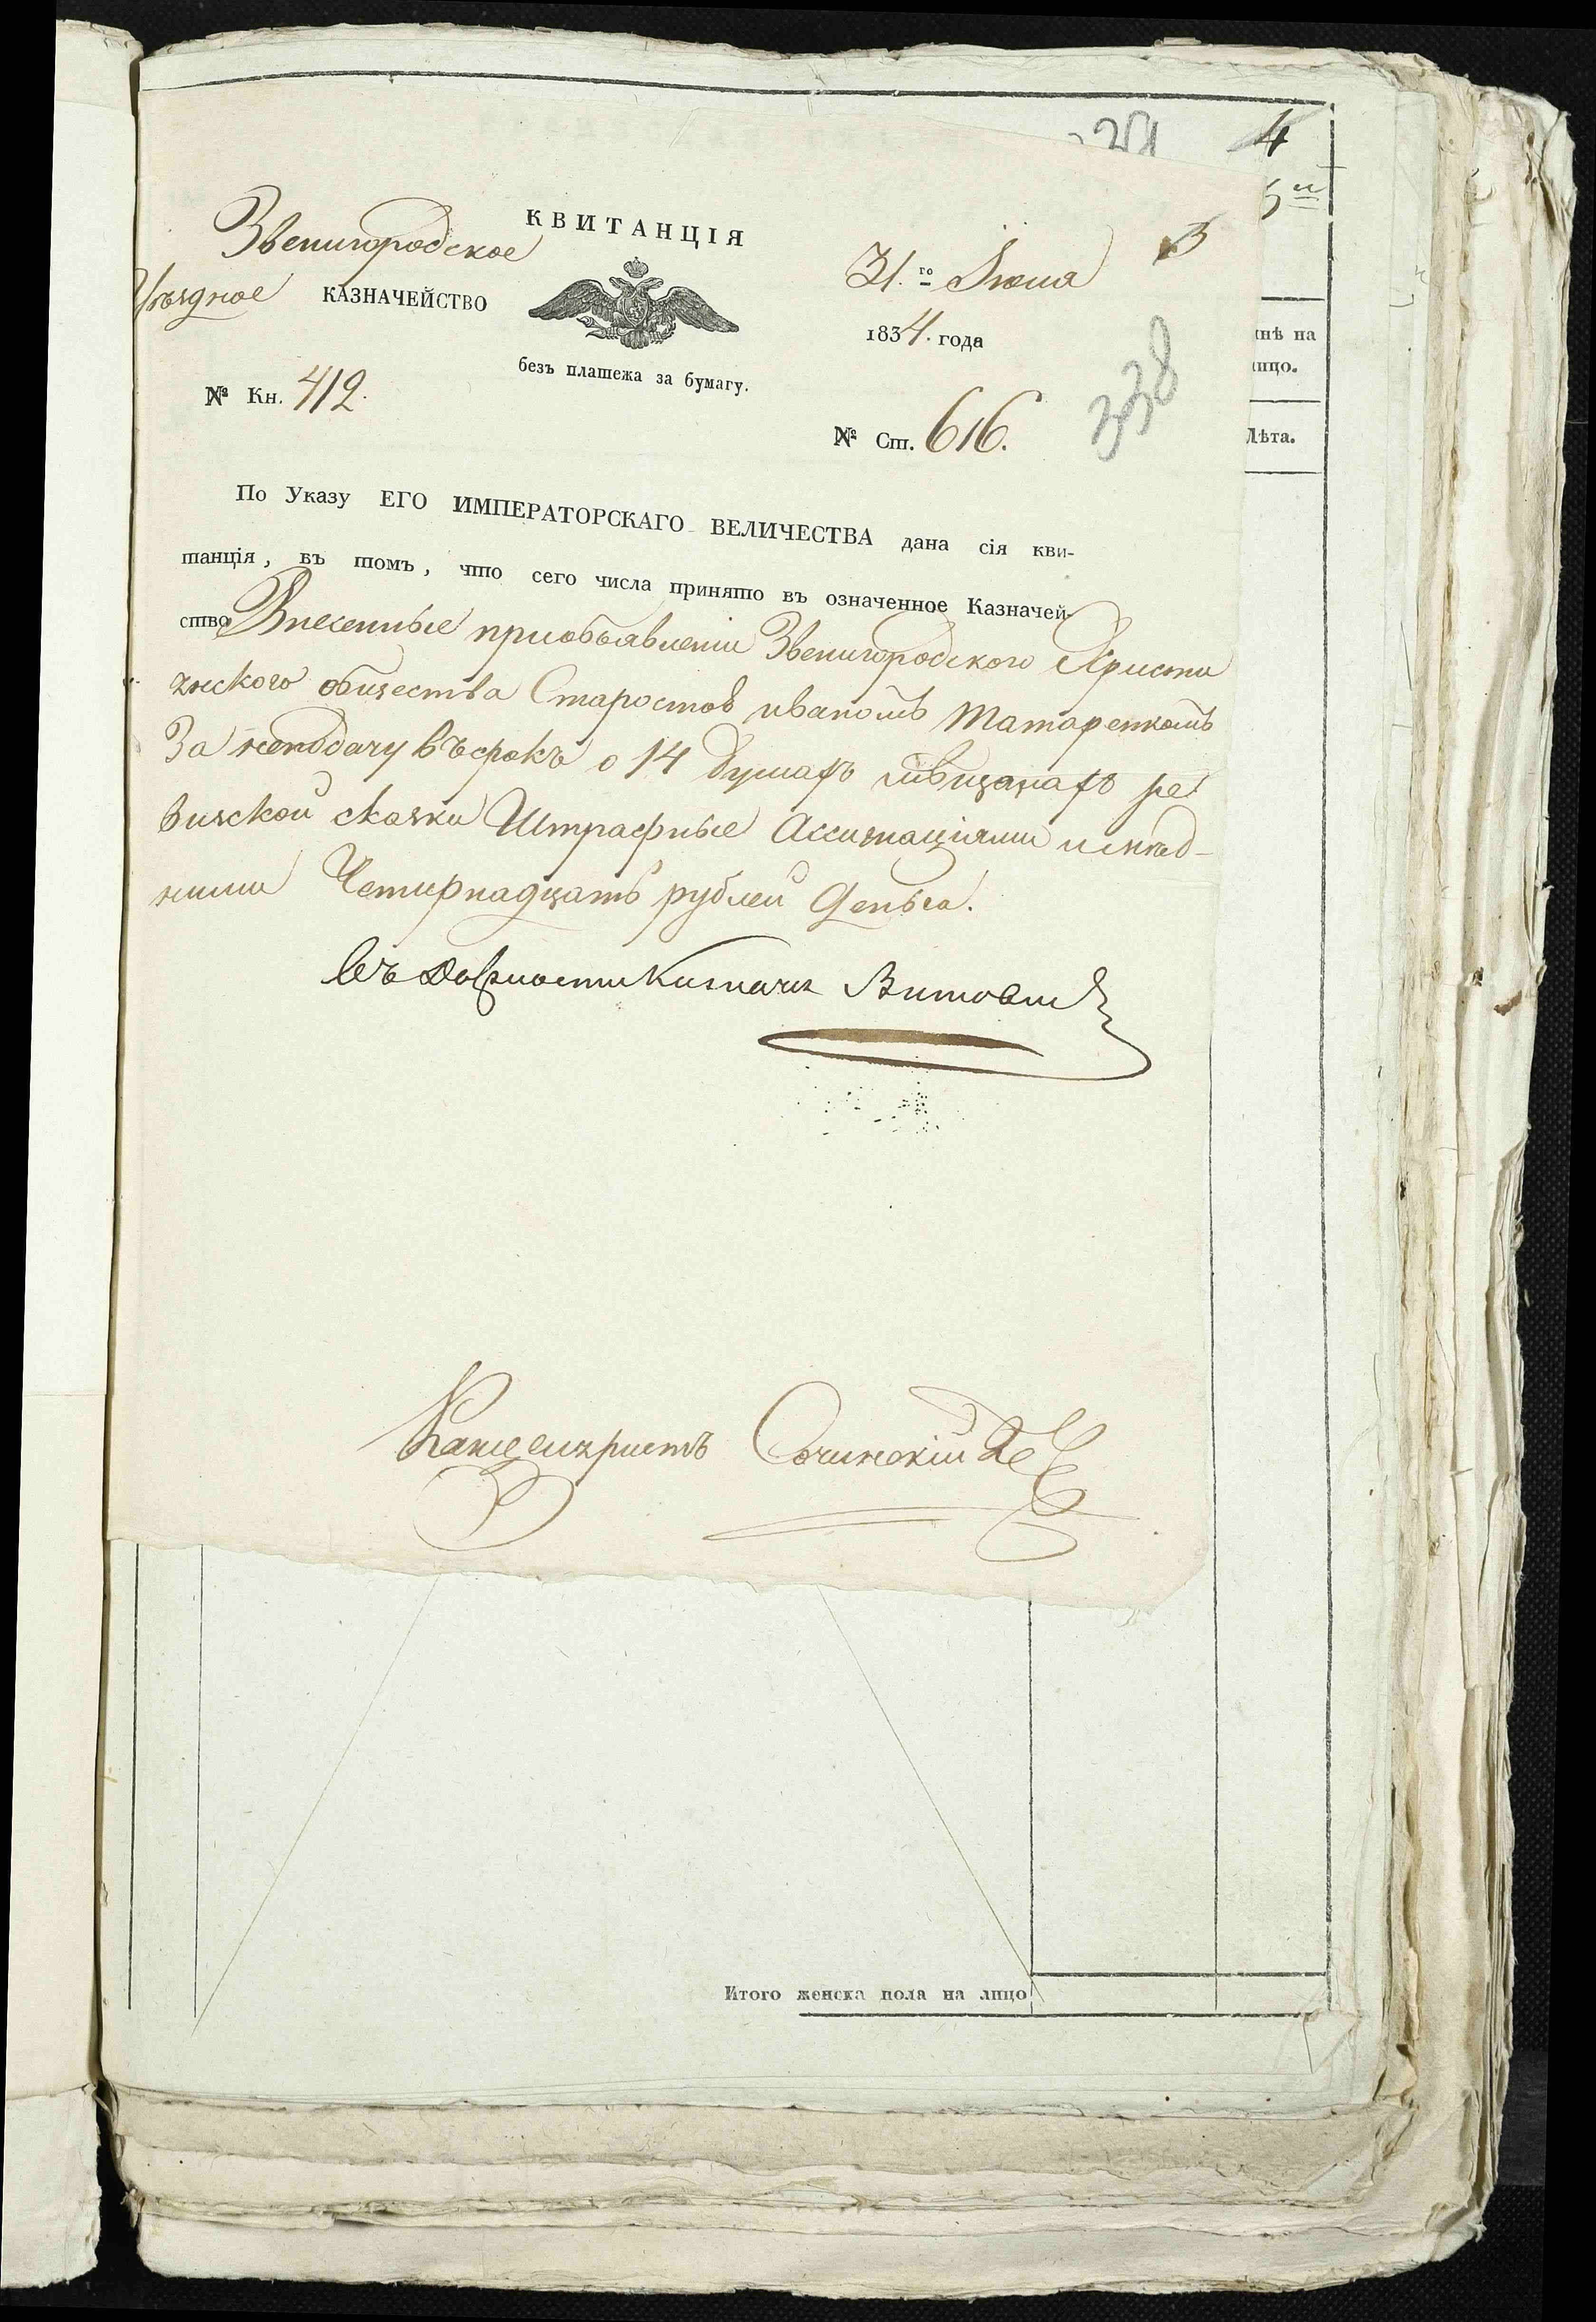 4
КВИТАНЦІЯ
Звенигородское
Уѣздное КАЗНАЧЕЙСТВО
31.го Іюля
1834. года
безъ платежа за бумагу.
№ Кн. 412.
338
№ Ст. 616.
нѣ на
ицо.
Лѣта.
По Указу ЕГО ИМПЕРАТОРСКАГО ВЕЛИЧЕСТВА дана сія кви-
танція, въ томъ, что сего числа принято въ означенное Казначей-
ство Внесенные приобъявленіи Звенигородского Христи
анского общества Старостой иваномъ Татаренкомъ
За неподачу въ срокъ о 14 душахъ мѣщанахъ ре
визской сказки Штрафные Ассигнаціями и мѣд-
ными Четирнадцать рублей Деньга.
Въ Должности Казначея Витовш
Канцеляристъ Сочинскій
Итого женска пола на лицо